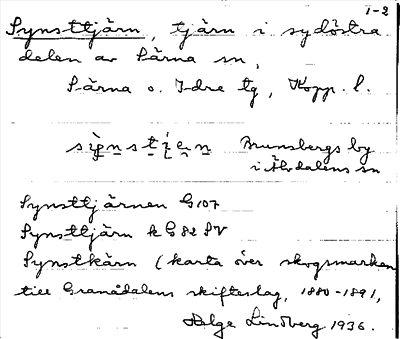 1-2
Synsttjärn, tjärn i sydöstra
delen av Särna sn,
Särna o. Idre tg, Kopp. l.
Brunsbergs by
i Älvdalens sn
Synsttjärnen G107
Synsttjärn k G 82 SV
Synstkärn (karta över skogsmarken
till Granådalens skifteslag, 1880-1891,
Helge Lindberg 1936.